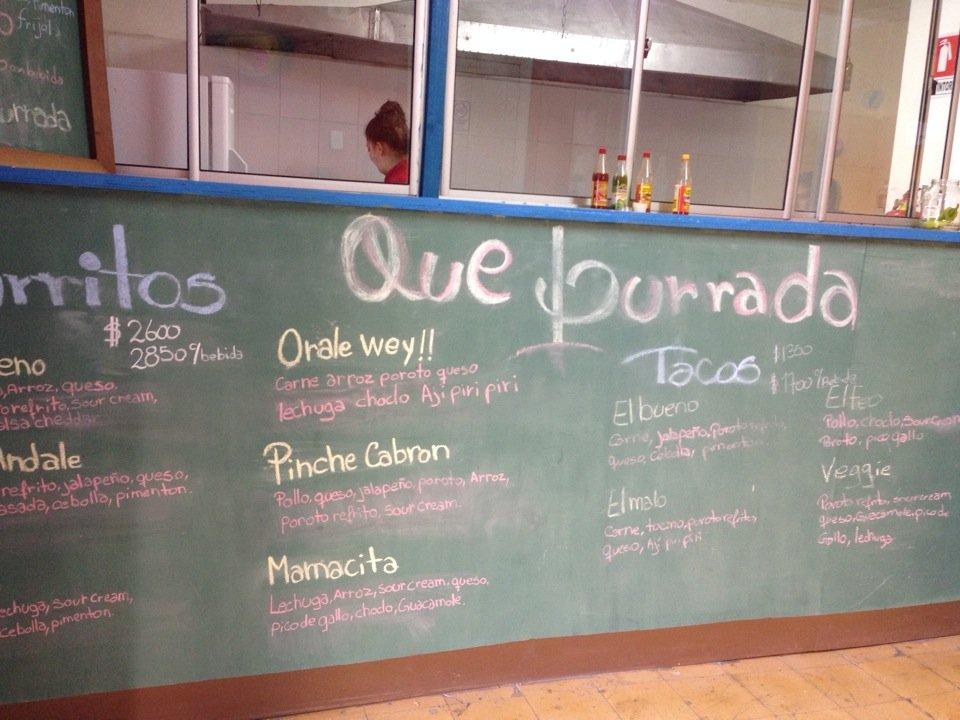 frijol
burrada
urritos
$2600
2850 c/bebida
eno
, Arroz, queso.
refrito, sour cream,
alsa cheddar.
Andale
refrito, jalapeño, queso,
asada, cebolla, pimenton.
echuga, sour cream,
cebolla, pimenton.
Que burrada
Orale wey!!
Carne arroz poroto queso
lechuga choclo Ají piri piri
Pinche Cabron
Pollo, queso, jalapeño, poroto, Arroz,
Poroto refrito, sour cream.
Mamacita
Lechuga, Arroz, sour cream, queso,
pico de gallo, choclo, Guacamole.
Tacos
$1350
$1700 c/bebida
El bueno
Carne, jalapeño, Poroto refrito,
queso, Cebolla, pimenton.
El malo
Carne, tocino, poroto refrito,
queso, Ají piri piri
El feo
Pollo, choclo, sour cream
Poroto, pico gallo
Veggie
Poroto refrito, sourcream
queso, Guacamole, pico de
Gallo, lechuga